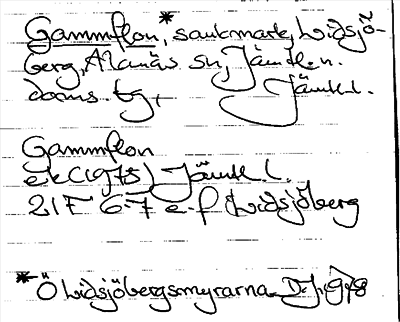 Gammflon*, sankmark, Lidsjö-
berg, Alanäs sn, Jämtl. n.
doms. tg, Jämtl. l.
Gammflon
ek (1975) Jämtl l.
21F 6-7 e-f Lidsjöberg
* Ö Lidsjöbergsmyrarna D. J. 1978